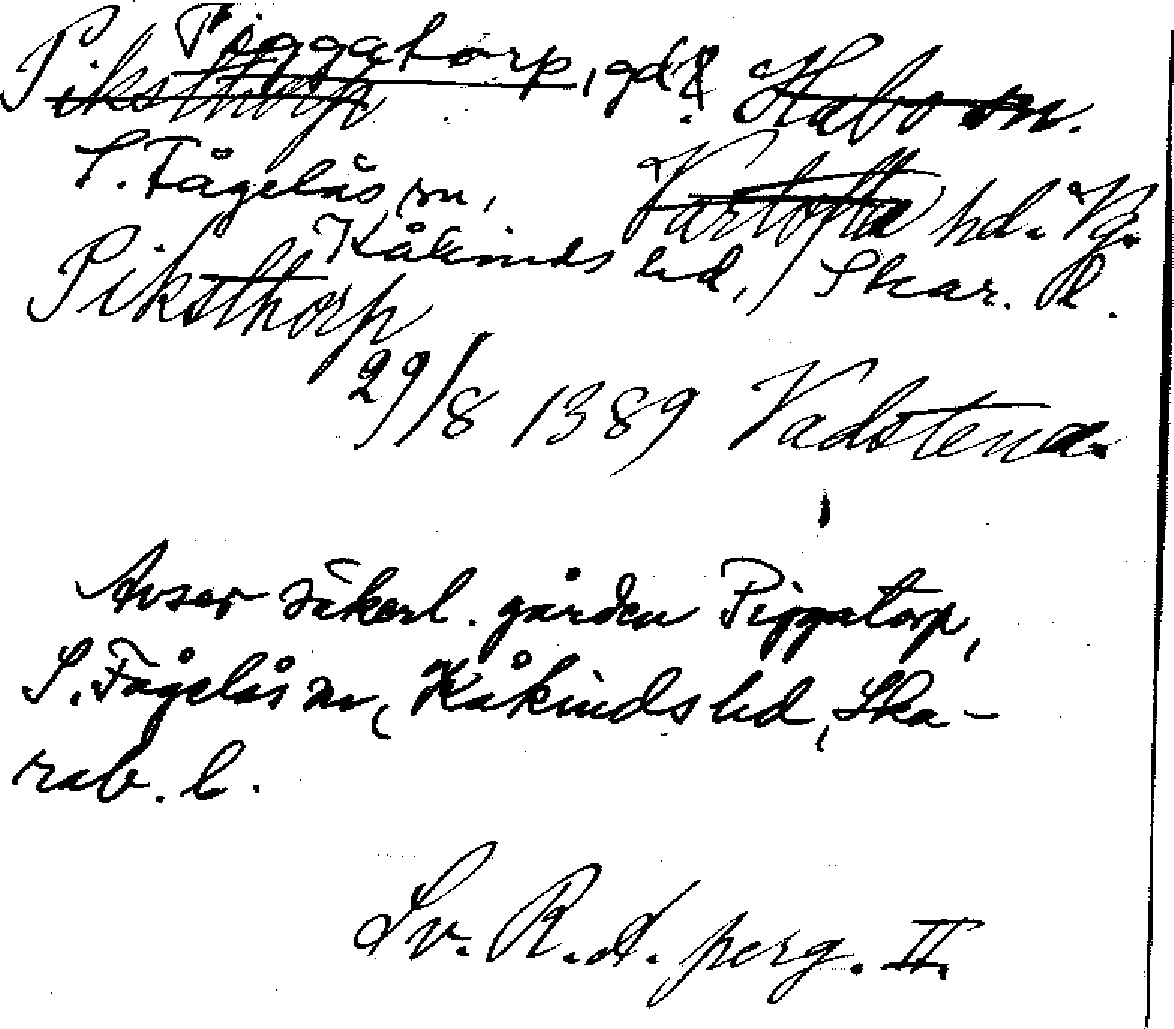 Piggatorp, gd?
Piksthorp Habo sn.
S. Fågelås sn, Vartofta hd. Vg.
Kåkinds hd, Skar. l.
Piksthorp
29/8 1389 Vadstena.
Avser säkerl. gården Piggatorp,
S. Fågelås sn, Kåkinds hd, Ska-
rab. l.
Sv. R.A. perg. II.